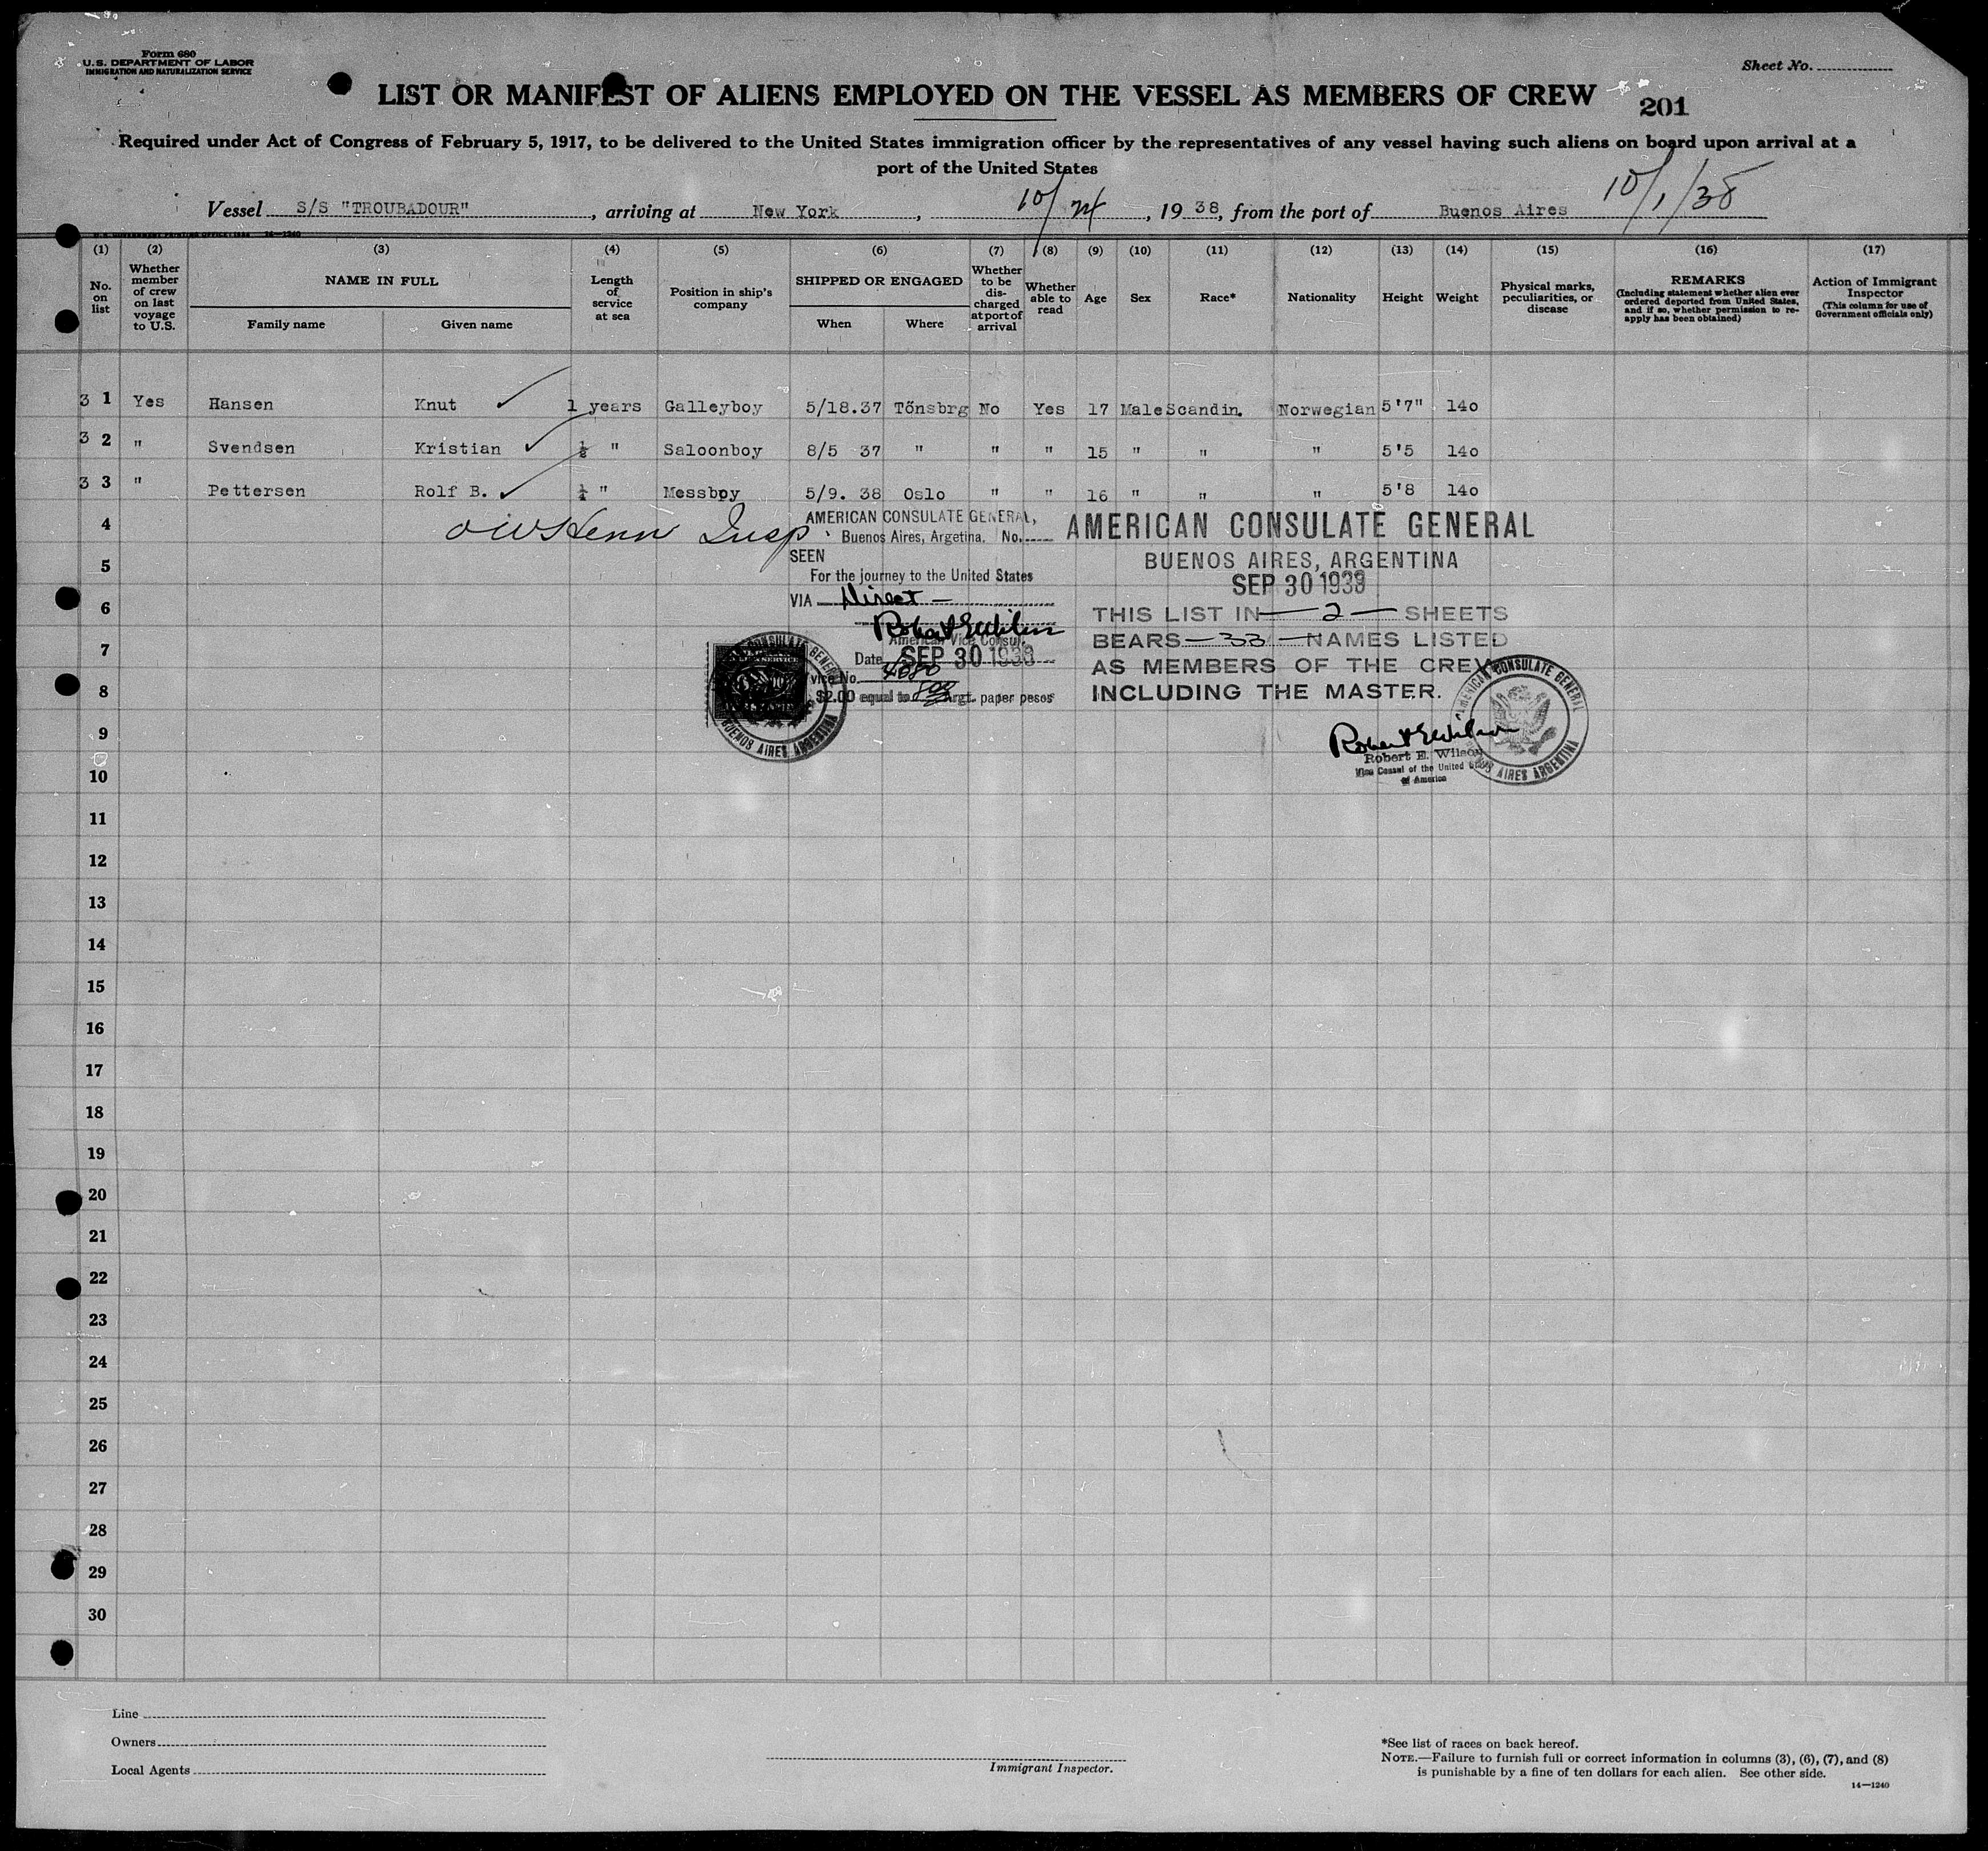 Form 680
U.S. DEPARTMENT OF LABOR
IMMIGRATION AND NATURALIZATION SERVICE
Sheet No.
LIST OR MANIFEST OF ALIENS EMPLOYED ON THE VESSEL AS MEMBERS OF CREW
201
Required under Act of Congress of February 5, 1917, to be delivered to the United States immigration officer by the representatives of any vessel having such aliens on board upon arrival at a
port of the United States
Vessel S/S "TROUBADOUR", arriving at New York, 10/24, 1938, from the port of Buenos Aires 10/1/38
(1) (2) (3) (4) (5) (6) (7) (8) (9) (10) (11) (12) (13) (14) (15) (16) (17)
No. on list
Whether member of crew on last voyage to U.S.
NAME IN FULL
Family name
Given name
Length of service at sea
Position in ship's company
SHIPPED OR ENGAGED
When
Where
Whether to be discharged at port of arrival
Whether able to read
Age
Sex
Race*
Nationality
Height
Weight
Physical marks, peculiarities, or disease
REMARKS
(Including statement whether alien ever ordered deported from United States, and if so, whether permission to re-apply has been obtained)
Action of Immigrant Inspector
(This column for use of Government officials only)
3 1 Yes Hansen Knut 1 years Galleyboy 5/18.37 Tőnsbrg No Yes 17 Male Scandin. Norwegian 5'7" 140
3 2 " Svendsen Kristian ½ " Saloonboy 8/5 37 " " " 15 " " " 5'5 140
3 3 " Pettersen Rolf B. ¼ " Messboy 5/9. 38 Oslo " " 16 " " " 5'8 140
4
5
6
7
8
9
10
11
12
13
14
15
16
17
18
19
20
21
22
23
24
25
26
27
28
29
30
Insp.
AMERICAN CONSULATE GENERAL,
Buenos Aires, Argetina. No.
SEEN
For the journey to the United States
VIA Direct
Robert E Wilson
American Vice Consul.
Date SEP 30 1938
vice No. 4880
$2.00 equal to Argt. paper pesos
CONSULATE GENERAL
BUENOS AIRES ARGENTINA
AMERICAN CONSULATE GENERAL
BUENOS AIRES, ARGENTINA
SEP 30 1938
THIS LIST IN 2 SHEETS
BEARS 33 NAMES LISTED
AS MEMBERS OF THE CREW
INCLUDING THE MASTER.
AMERICAN CONSULATE GENERAL
BUENOS AIRES ARGENTINA
Robert E Wilson
Robert E. Wilson
Vice Consul of the United States
of America
Line
Owners
Local Agents
Immigrant Inspector.
*See list of races on back hereof.
NOTE.—Failure to furnish full or correct information in columns (3), (6), (7), and (8)
is punishable by a fine of ten dollars for each alien. See other side.
14—1240